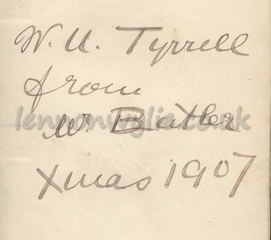 W. U. Tyrrell
from
W. Butler
Xmas 1907
lennonwylie.co.uk